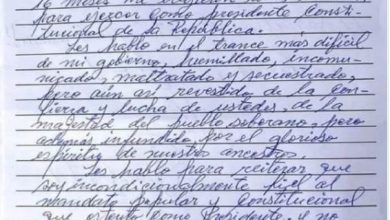 16 meses ha
para ejercer como presidente Consti-
tucional de la República.
Les hablo en el trance más difícil
de mi gobierno, humillado, incomu-
nicado, maltratado y secuestrado,
pero aún así, revestido de la con-
fianza y lucha de ustedes, de la
majestad del pueblo soberano, pero
además, infundido por el glorioso
espíritu de nuestros ancestros.
Les hablo para reiterar que
soy incondicionalmente fiel al
mandato popular y Constitucional
que ostento como Presidente, y no